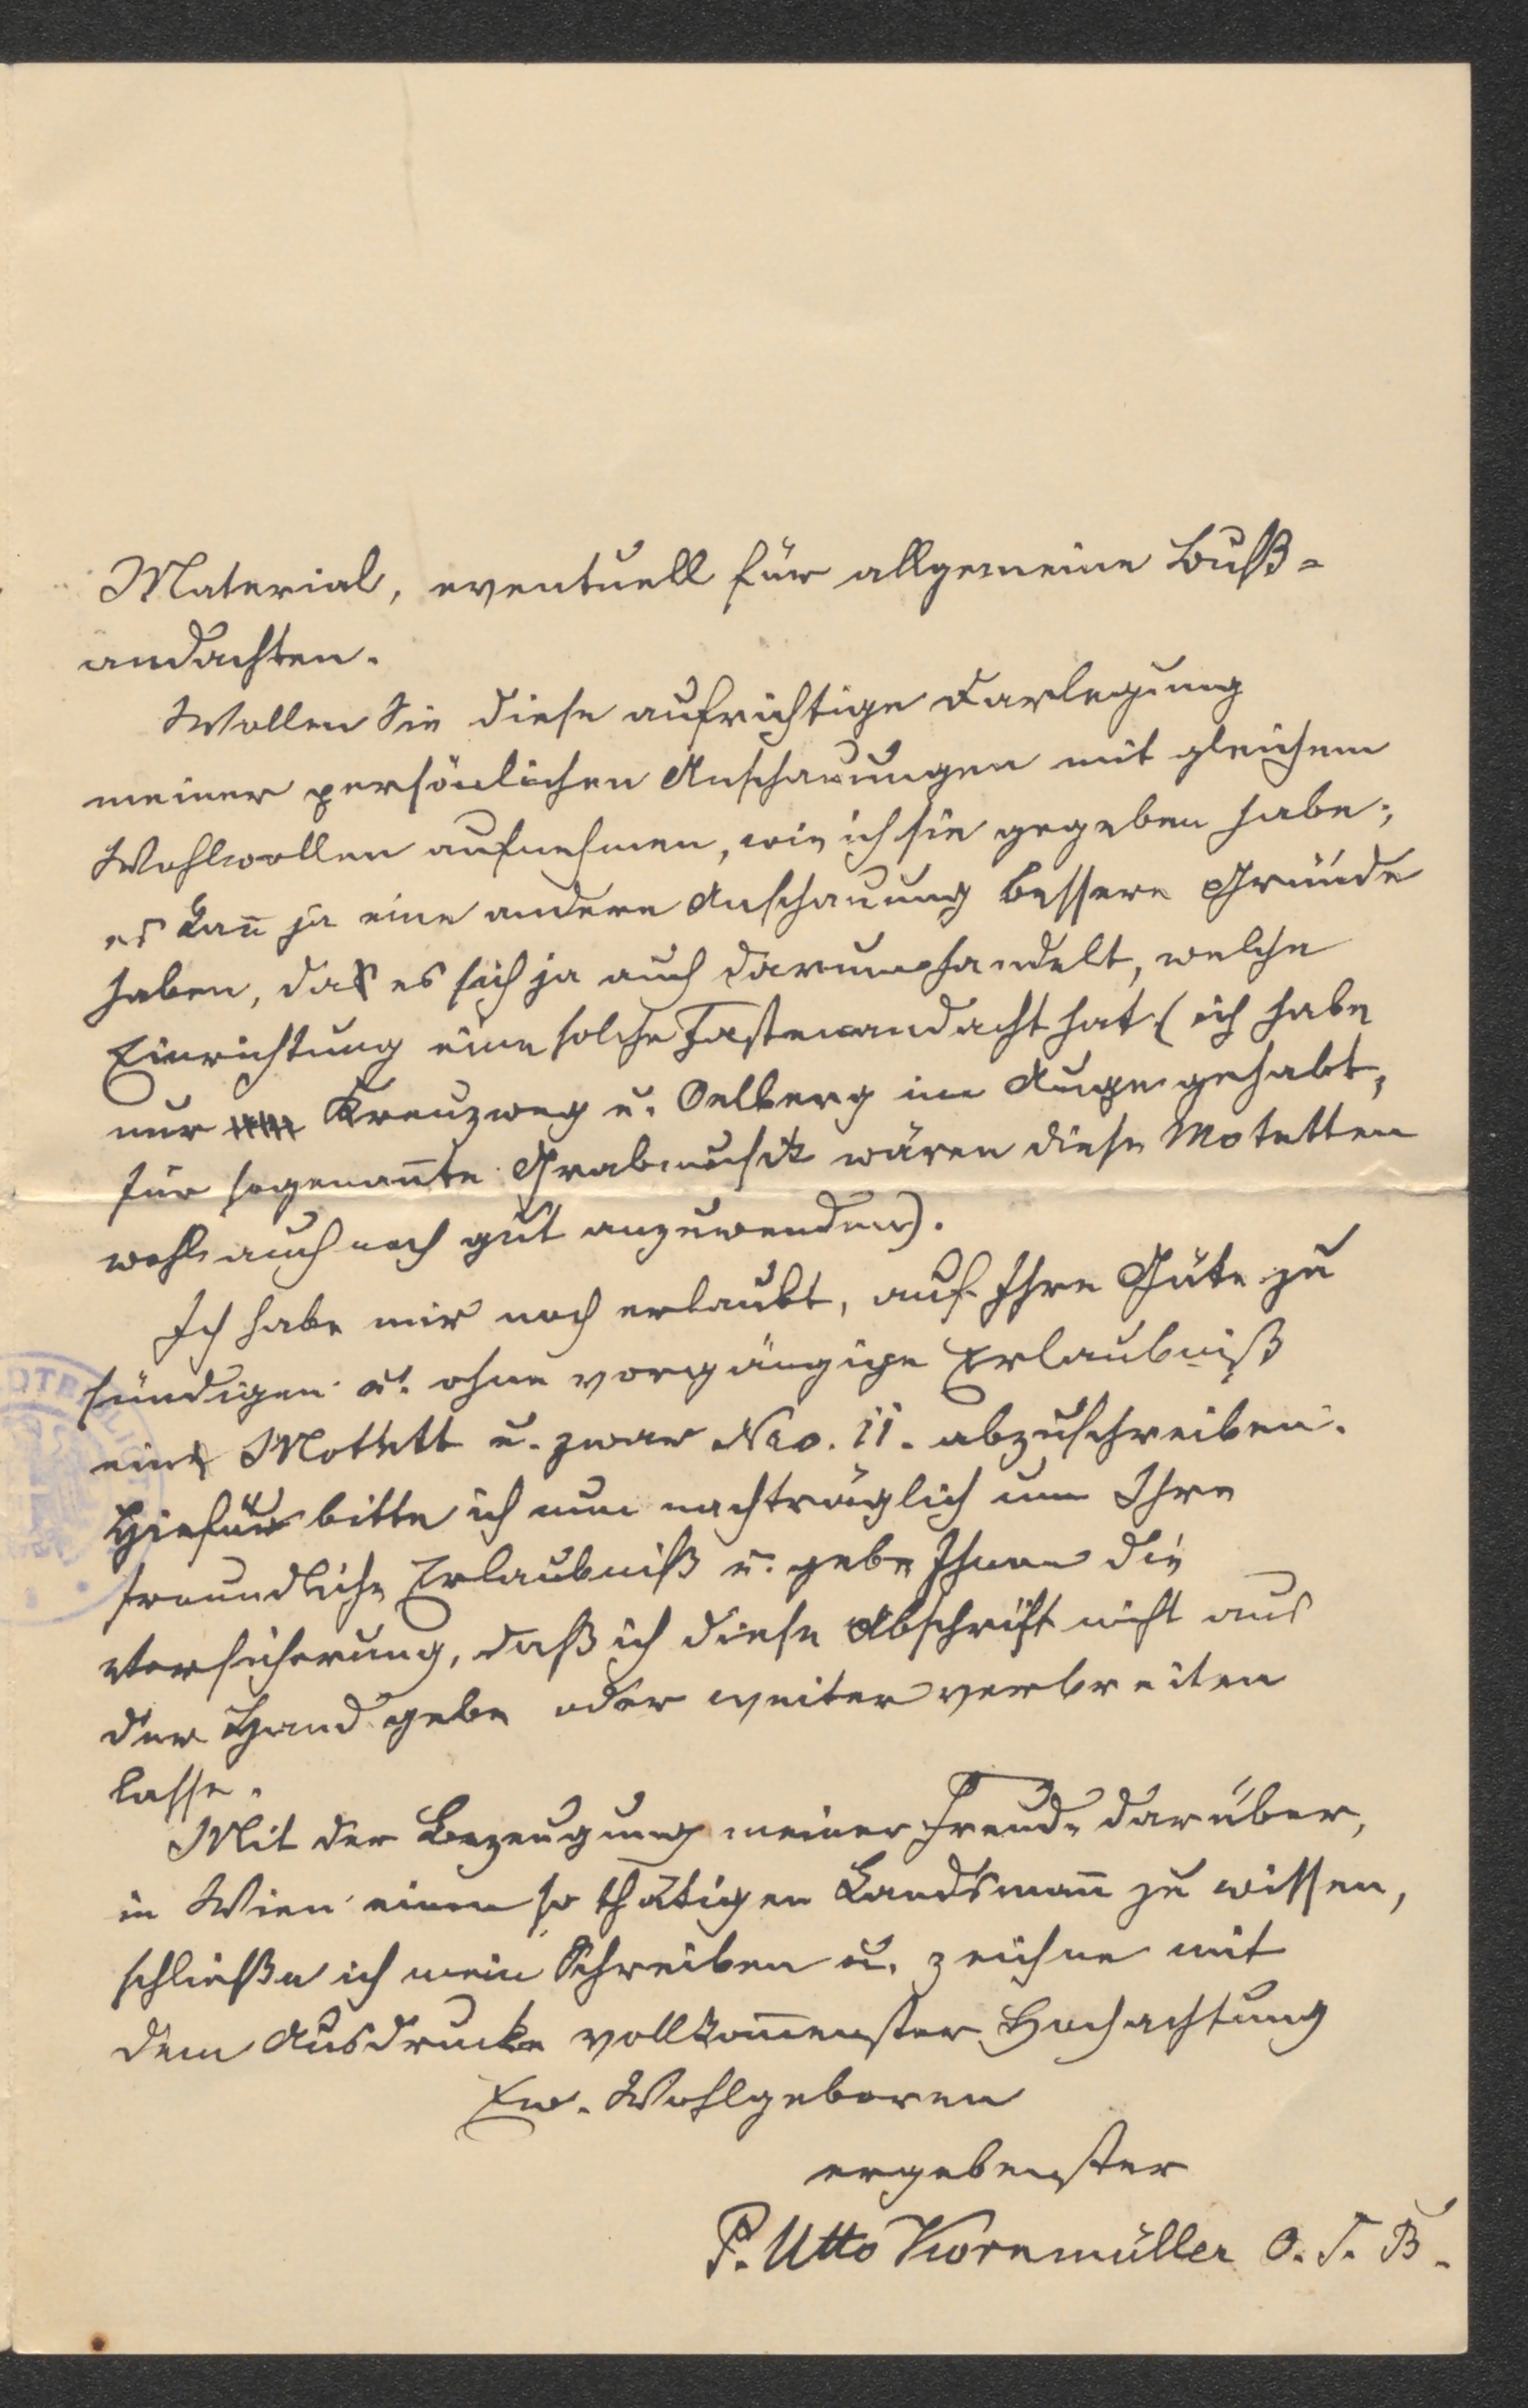 Material, eventuell für allgemeine Buß-
andachten.
Wollen Sie diese aufrichtige Darlegung
meiner persönlichen Anschauungen mit gleichem
Wohlwollen aufnehmen, wie ich sie gegeben habe;
es kañ ja eine andere Anschauung bessere Gründe
haben, das es sich ja auch darum handelt, welche
Einrichtung eine solche Fastenandacht hat (ich habe
nur Kreuzweg u. Oelberg im Auge gehabt,
für sogenañte Grabmusik wären diese Motetten
wohl auch noch gut anzuwenden).
Ich habe mir noch erlaubt, auf Ihre Güte zu
sündigen u. ohne vorgängige Erlaubniß
eine Mottett u. zwar Nro. 11. abzuschreiben.
Hiefür bitte ich nun nachträglich um Ihre
freundliche Erlaubniß u. gebe Ihnen die
Versicherung, daß ich diese Abschrift nicht aus
der Hand gebe oder weiter verbreiten
lasse.
Mit der Bezeugung meiner Freude darüber,
in Wien einen so thätigen Landsmañ zu wissen,
schließe ich mein Schreiben u. zeichne mit
dem Ausdrucke vollkom̄enster Hochachtung
Ew. Wohlgeboren
ergebenster
P. Utto Kornmüller O. S. B.